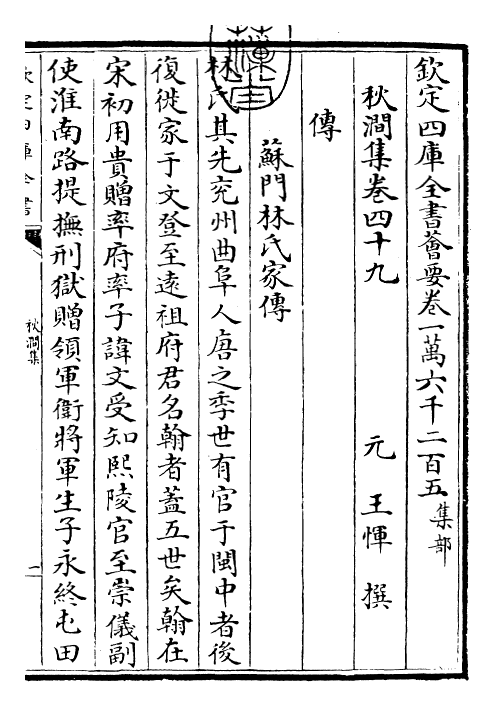 欽定四庫全書薈要卷一萬六千二百五集部
秋澗集卷四十九
元 王惲 撰
傳
蘇門林氏家傳
林氏其先兖州曲阜人唐之季世有官于閩中者後
復徙家于文登至遠祖府君名翰者蓋五世矣翰在
宋初用貴贈率府率子諱文受知熙陵官至崇儀副
使淮南路提撫刑獄贈領軍衛將軍生子永終屯田
欽定四庫全書
秋澗集
一